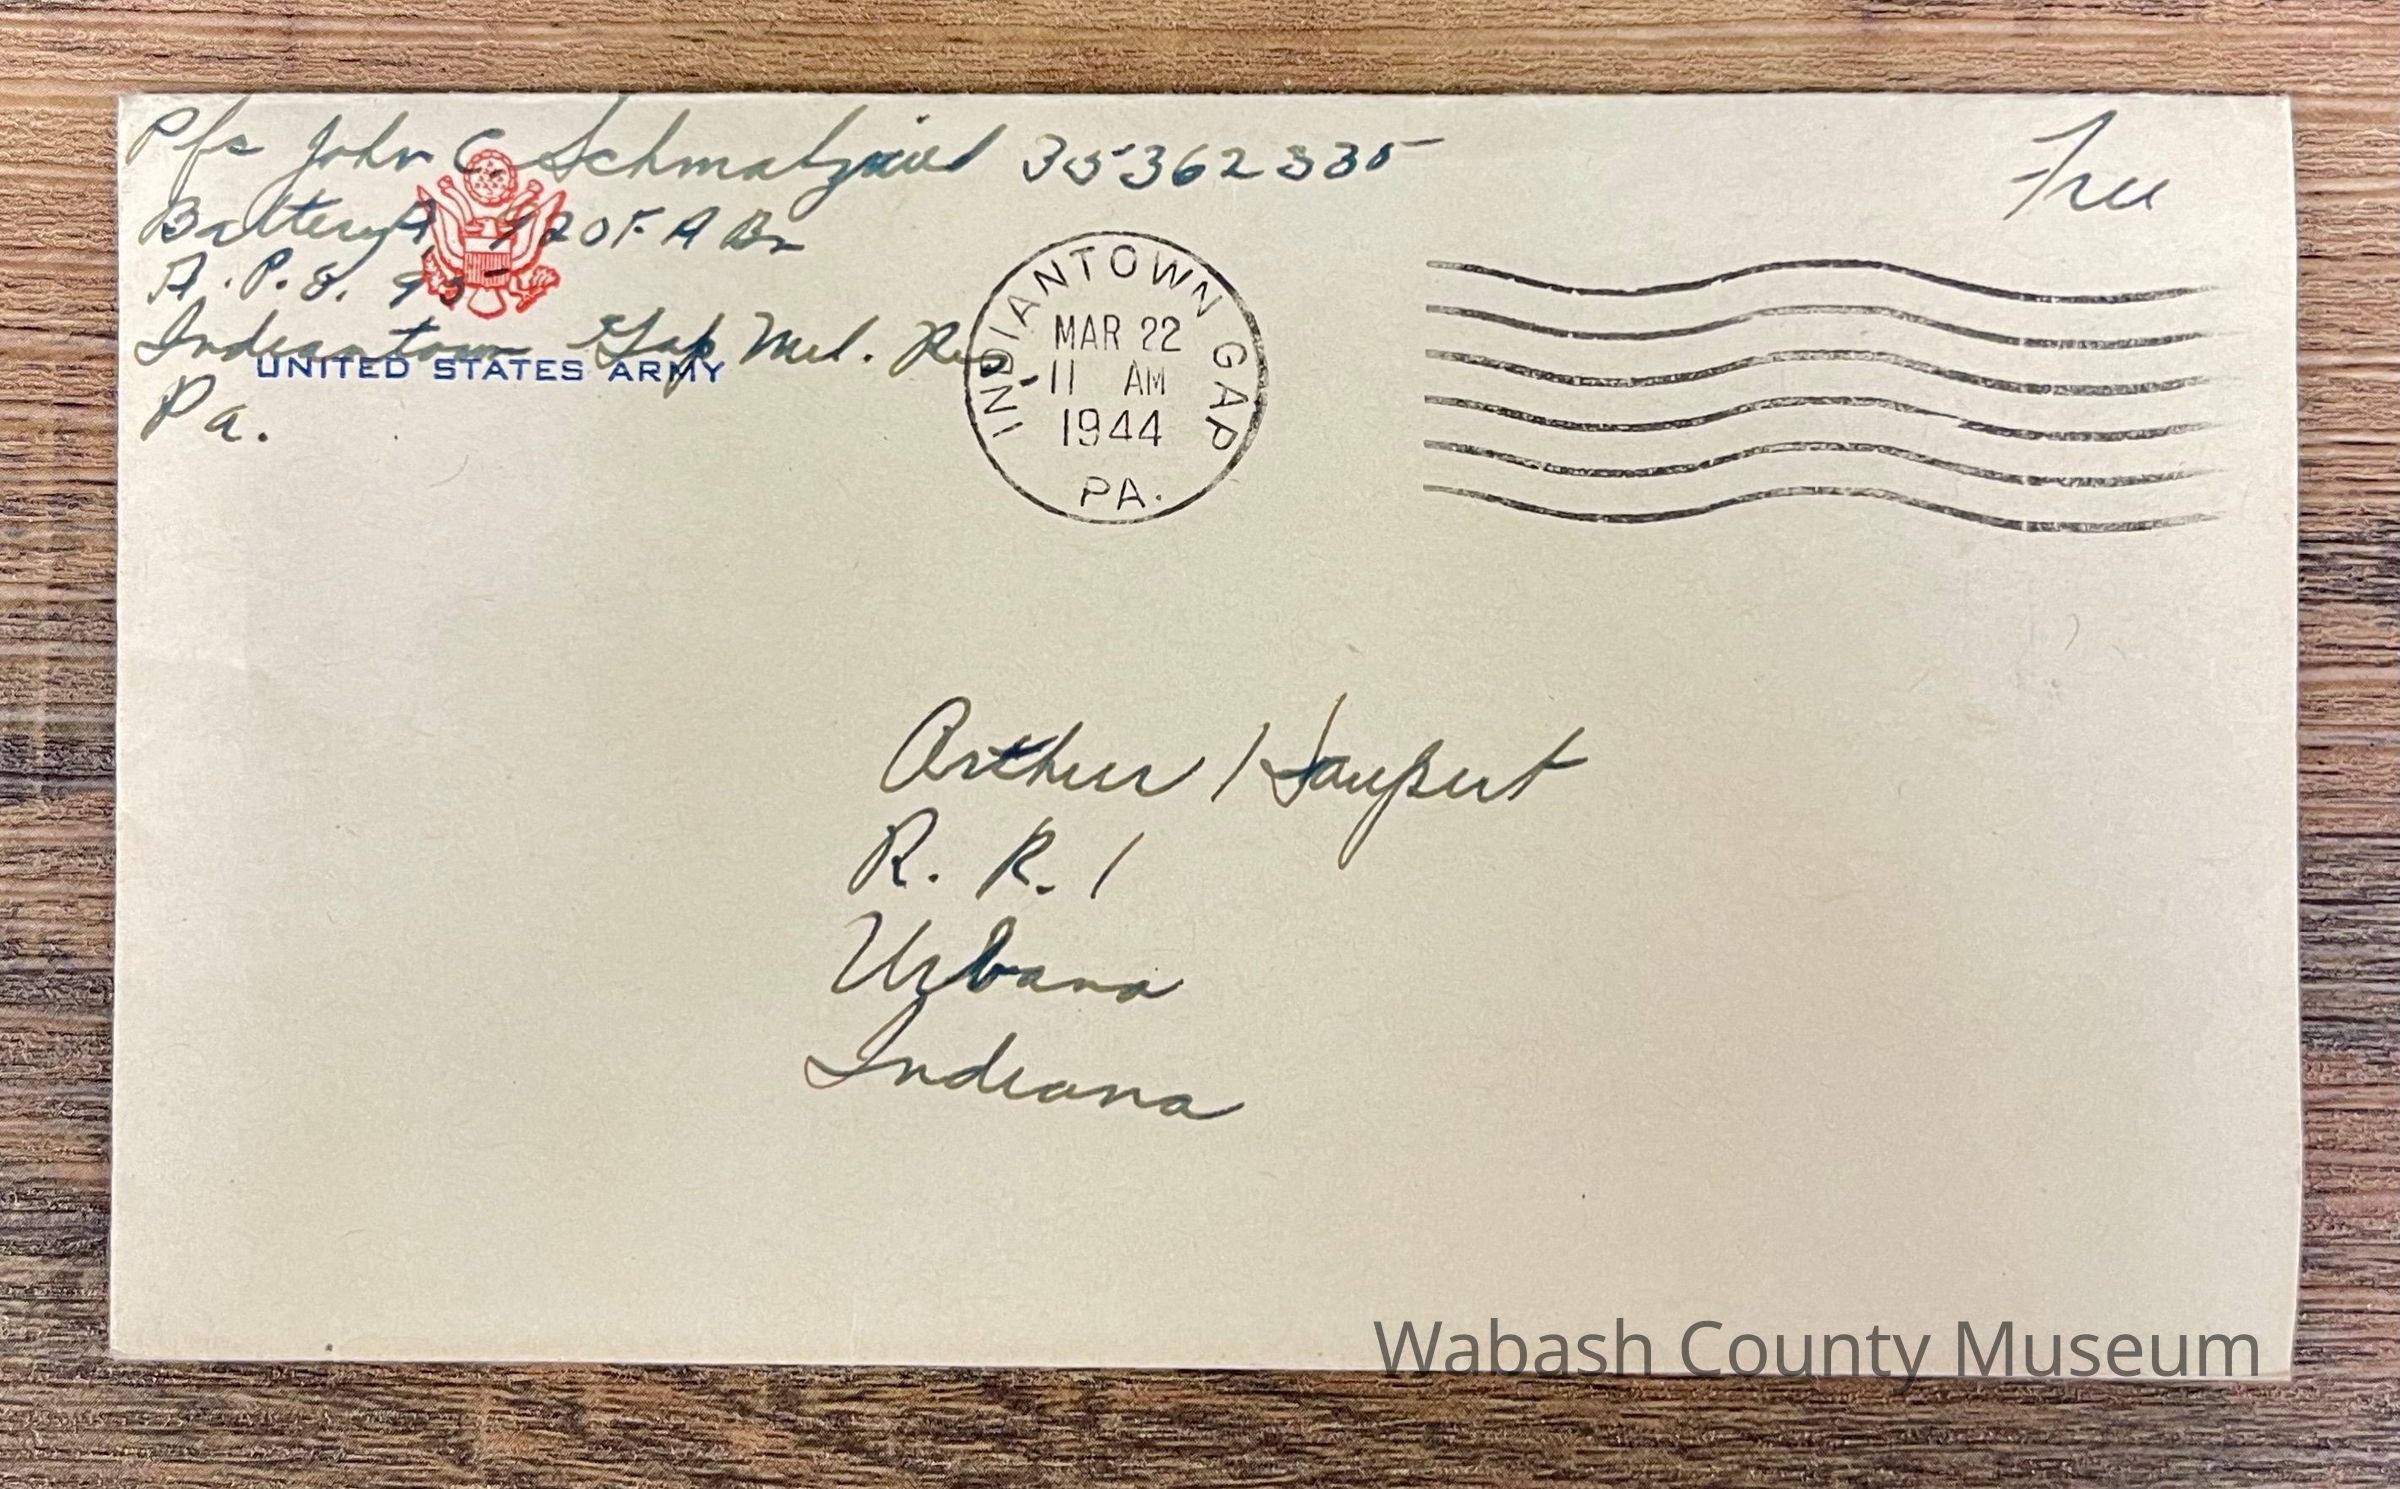 Pfc John C. Schmalzried 35362335
Battery A, 920 F A Bn
A. P. O. 95
Indiantown Gap Mil. Res
UNITED STATES ARMY
Pa.
Free
INDIANTOWN GAP
MAR 22
11 AM
1944
PA.
Arthur Haupert
R. R. 1
Urbana
Indiana
Wabash County Museum